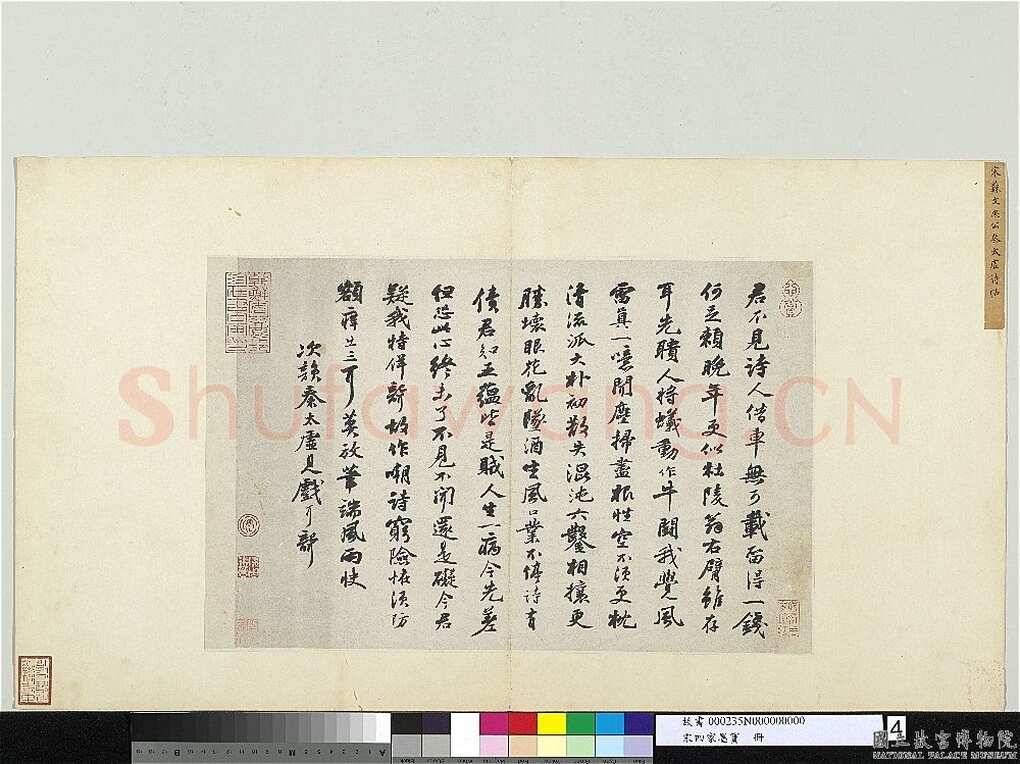 宋蘇文忠公太虛詩帖
君不見詩人借車無可載留得一錢
何足賴晚年更似杜陵翁右臂雖存
耳先聵人將蟻動作牛鬪我覺風
雷真一噫聞塵掃盡根性空不須更枕
清流派大朴初散失混沌六鑿相攘更
勝壞眼花亂墜酒生風口業不停詩有
債君知五蘊皆是賊人生一病今先差
但恐此心終未了不見不聞還是礙今君
疑我特佯聾故作嘲詩窮險怪須防
額癢出三耳莫放筆端風雨快
次韻秦太虛見戲耳聾
Shufawang.CN
故書 000235N000000000
宋四家墨寶 冊
4
國立故宮博物院
NATIONAL PALACE MUSEUM